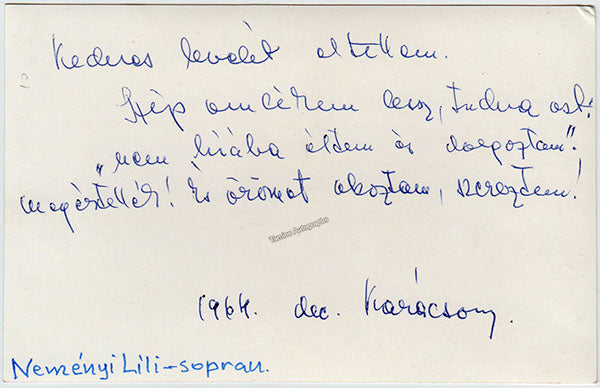 Kedves levelét eltettem.
Szép emlékem lesz, tudva azt:
"nem hiába éltem és dolgoztam".
megértették! És örömet okoztam, szereztem!
Tamino Autographs
1964. dec. Karácsony.
Neményi Lili-sopran.